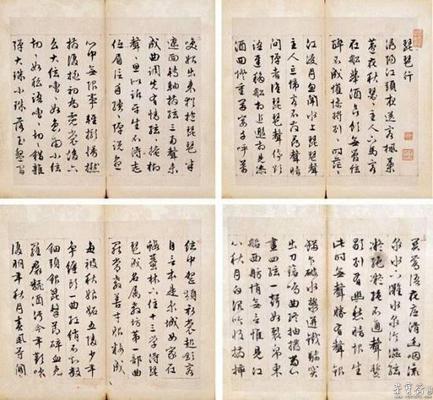 琵琶行
潯陽江頭夜送客楓葉
荻花秋瑟〻主人下馬客
在船舉酒欲飲無管絃
醉不成歡慘將別別時茫〻
江浸月忽聞水上琵琶聲
主人忘歸客不發尋聲暗
問彈者誰琵琶聲停欲
語遲移船相近邀相見添
酒回燈重開宴千呼萬
喚始出來猶抱琵琶半
遮面轉軸撥絃三兩聲未
成曲調先有情絃〻掩抑
聲〻思似訴生平不得志
低眉信手續〻彈說盡
心中無限事輕攏慢撚
抹復挑初為霓裳後六
么大絃嘈〻如急雨小絃
切〻如私語嘈〻切〻錯雜
彈大珠小珠落玉盤間
關鶯語花底滑幽咽
泉流水下灘水泉冷澀絃
凝絕凝絕不通聲暫歇
別有幽愁暗恨生
此時無聲勝有聲銀
瓶乍破水漿迸鐵騎突
出刀鎗鳴曲終抽撥當心
畫四絃一聲如裂帛東
船西舫悄無言惟見江
心秋月白沉吟收撥插
絃中整頓衣裳起斂容
自言本是京城女家在
蝦蟆陵下住十三學得琵
琶成名屬教坊第一部曲
罷常教善才服妝成
每被秋娘妒五陵少年
爭纏頭一曲紅綃不知數
鈿頭銀篦擊節碎血色
羅裙翻酒污今年歡笑
復明年秋月春風等閑